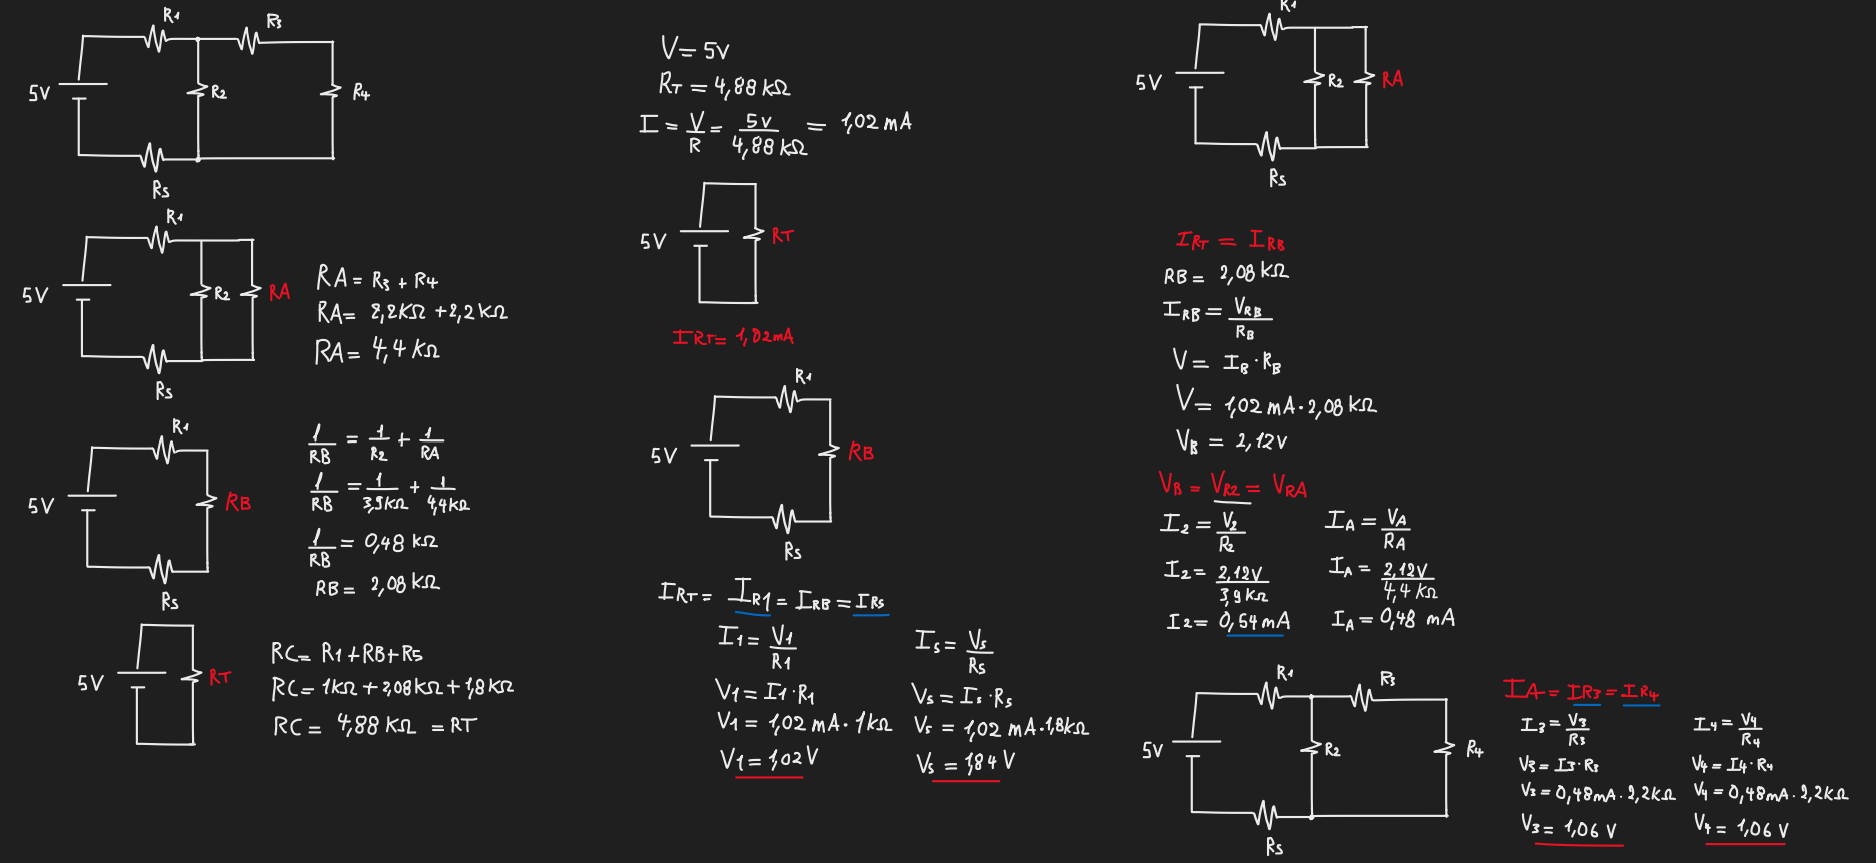 R1
R3
5V
R2
R4
R5
R1
5V
R2
RA
R5
RA = R3 + R4
RA = 2,2KΩ + 2,2KΩ
RA = 4,4 KΩ
R1
5V
RB
R5
1/RB = 1/R2 + 1/RA
1/RB = 1/3,9KΩ + 1/4,4KΩ
1/RB = 0,48 KΩ
RB = 2,08 KΩ
5V
RT
RC = R1 + RB + R5
RC = 1KΩ + 2,08KΩ + 1,8KΩ
RC = 4,88 KΩ = RT
V = 5V
RT = 4,88 KΩ
I = V/R = 5V/4,88 KΩ = 1,02 mA
5V
RT
IRT = 1,02mA
R1
5V
RB
R5
IRT = IR1 = IRB = IR5
I1 = V1/R1
V1 = I1 · R1
V1 = 1,02 mA · 1KΩ
V1 = 1,02 V
I5 = V5/R5
V5 = I5 · R5
V5 = 1,02 mA · 1,8KΩ
V5 = 1,84 V
R1
5V
R2
RA
R5
IRT = IRB
RB = 2,08 KΩ
IRB = VRB/RB
V = IB · RB
V = 1,02 mA · 2,08 KΩ
VB = 2,12V
VB = VR2 = VRA
I2 = V2/R2
I2 = 2,12V/3,9KΩ
I2 = 0,54 mA
IA = VA/RA
IA = 2,12V/4,4 KΩ
IA = 0,48 mA
R1
R3
5V
R2
R4
R5
IA = IR3 = IR4
I3 = V3/R3
V3 = I3 · R3
V3 = 0,48mA · 2,2KΩ
V3 = 1,06 V
I4 = V4/R4
V4 = I4 · R4
V4 = 0,48mA · 2,2KΩ
V4 = 1,06 V